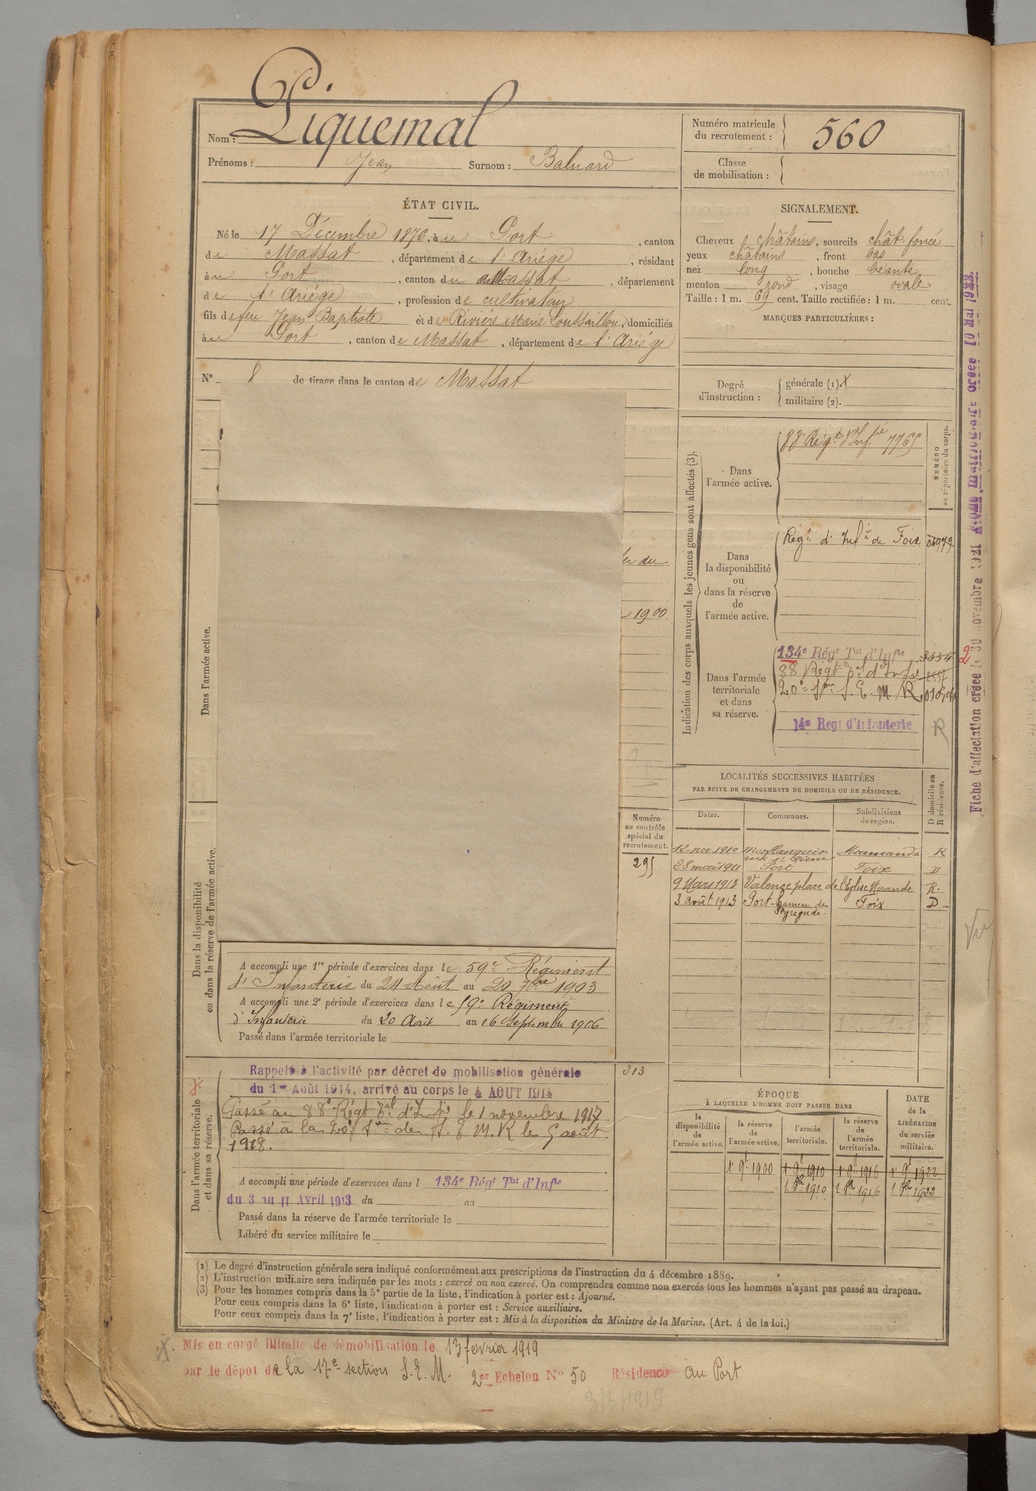 Nom : Piquemal
Prénoms : Jean Surnom : Baluard
Numéro matricule
du recrutement : 560
Classe
de mobilisation :
ÉTAT CIVIL.
Né le 17 Décembre 1876, à u Port, canton
de Massat, département de l'Ariége, résidant
à u Port, canton de Massat, département
de l'Ariége, profession de cultivateur
fils de feu Jean Baptiste et de Rivière Marie, domiciliés
à u Port, canton de Massat, département de l'Ariége
N° 8 de tirage dans le canton de Massat
SIGNALEMENT.
Cheveux châtains, sourcils chât. foncé
yeux châtains, front bas
nez long, bouche béante
menton rond, visage ovale
Taille : 1 m. 69 cent. Taille rectifiée : 1 m. cent.
MARQUES PARTICULIÈRES :
Degré
d'instruction :
générale (1).
militaire (2).
Dans l'armée active.
1900
Indication des corps auxquels les jeunes gens sont affectés (3).
Dans
l'armée active.
88 Régt d'Infie 7765
NUMÉRO
au répertoire du corps.
Dans
la disponibilité
ou
dans la réserve
de
l'armée active.
Régt d'Infie de Foix
Dans l'armée
territoriale
et dans
sa réserve.
134e Régt Tal d'Infie
88 Régt Tal d'Infie
20e Son S. E. M. R.
14e Regt d'Infanterie
R
LOCALITÉS SUCCESSIVES HABITÉES
PAR SUITE DE CHANGEMENTS DE DOMICILE OU DE RÉSIDENCE.
Dates. Communes. Subdivisions de région. D domicile ou R résidence.
12 nov 1910 Monflanquin Marmande R
28 mai 1911 Port Foix D
9 Mars 1913 Valence place de l'Église Mirande R.
3 août 1913 Port hameau de Foix D
Numéro
au contrôle
spécial du
recrutement.
295
Dans la disponibilité
ou dans la réserve de l'armée active.
A accompli une 1re période d'exercices dans le 59e Régiment
d'Infanterie du 24 Août au 20 7bre 1903
A accompli une 2e période d'exercices dans le 59e Régiment
d'Infanterie du 20 Août au 16 Septembre 1906
Passé dans l'armée territoriale le
Dans l'armée territoriale
et dans sa réserve.
Rappelé à l'activité par décret de mobilisation générale
du 1er Août 1914, arrivé au corps le 4 AOUT 1914
313
Passé au 88e Régt Tal d'Infie le 1 novembre 1917
Passé à la 20e Son de S. E. M. R le 5 août
1918.
A accompli une période d'exercices dans l 134e Régt Tal d'Infie
du 3 au 11 Avril 1913 du au
Passé dans la réserve de l'armée territoriale le
Libéré du service militaire le
ÉPOQUE
À LAQUELLE L'HOMME DOIT PASSER DANS
la
disponibilité
de
l'armée active.
la réserve
de
l'armée active.
l'armée
territoriale.
la réserve
de
l'armée
territoriale.
DATE
de la
LIBÉRATION
du service
militaire.
1 9bre 1900 1 9bre 1910 1 9bre 1916 1 9bre 1922
1 8bre 1910 1 8bre 1916 1 8bre 1922
(1) Le degré d'instruction générale sera indiqué conformément aux prescriptions de l'instruction du 4 décembre 1889.
(2) L'instruction militaire sera indiquée par les mots : exercé ou non exercé. On comprendra comme non exercés tous les hommes n'ayant pas passé au drapeau.
(3) Pour les hommes compris dans la 5e partie de la liste, l'indication à porter est : Ajourné.
Pour ceux compris dans la 6e liste, l'indication à porter est : Service auxiliaire.
Pour ceux compris dans la 7e liste, l'indication à porter est : Mis à la disposition du Ministre de la Marine. (Art. 4 de la loi.)
Mis en congé illimité de démobilisation le 13 février 1919
par le dépot de la 17e section S. E. M. 2er Echelon N° 50 Résidence au Port
Fiche d'affectation créée le 30 novembre 1921